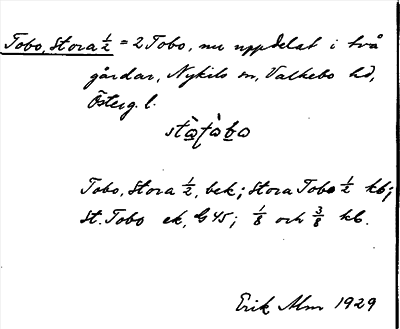 Tobo, Stora ½ = 2 Tobo, nu uppdelat i två
gårdar, Nykils sn, Valkebo hd,
Österg. l.
Tobo, Stora ½, bek; Stora Tobo ½ kb;
St. Tobo ek, G 45; ⅛ och ⅜ kb.
Erik Alm 1929